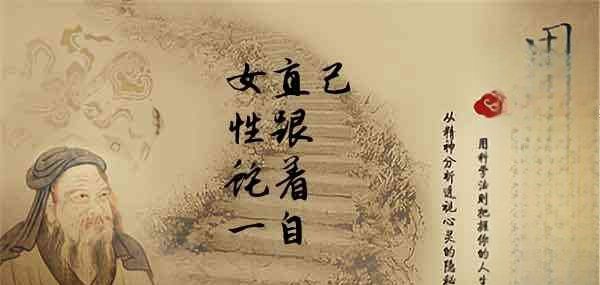 女性诧一
直跟着自
己
用科学法则把握你的人生
从精神分析透视心灵的隐秘